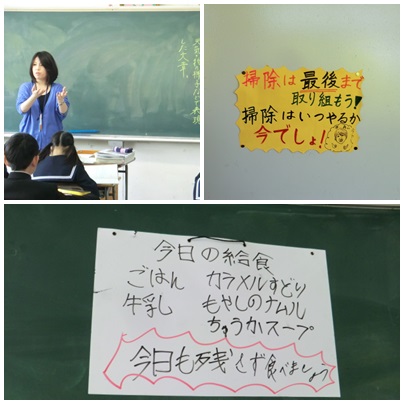 掃除は最後まで
取り組もう!
掃除はいつやるか
今でしょ!
今日の給食
ごはん カラメルすどり
牛乳 もやしのナムル
ちゅうかスープ
今日も残さず食べましょう